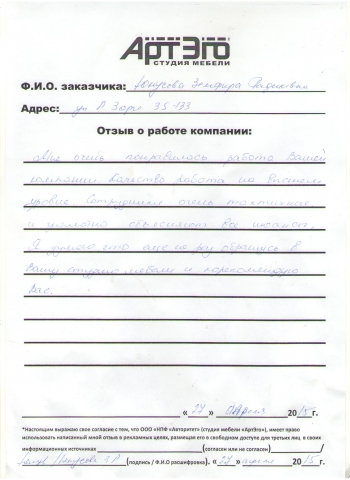 АртЭго
СТУДИЯ МЕБЕЛИ
Ф.И.О. заказчика: Юнусова Земфира
Адрес: ул Р. Зорге 35-133
Отзыв о работе компании:
Мне очень понравилась работа Вашей
компании. Качество работы на высшем
уровне. Сотрудники очень тактичные
и объясняют все нюансы.
Я думаю, что еще не раз обращусь в
Вашу студию мебели и порекомендую
Вас.
«27» апреля 2015г.
*Настоящим выражаю свое согласие с тем, что ООО «НПФ «Авторитет» (студия мебели «АртЭго»), имеет право
использовать написанный мной отзыв в рекламных целях, размещая его в свободном доступе для третьих лиц в своих
информационных источниках (согласен или не согласен) /
(подпись / Ф.И.О расшифровка). «27» апреля 2015г.